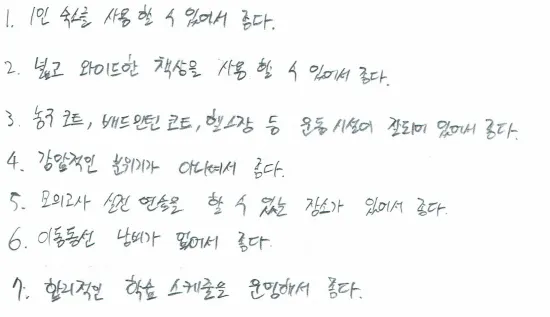 1. 1인 숙소를 사용 할 수 있어서 좋다.
2. 넓고 와이드한 책상을 사용 할 수 있어서 좋다.
3. 농구 코트, 배드민턴 코트, 헬스장 등 운동 시설이 잘되어 있어서 좋다.
4. 강압적인 분위기가 아니여서 좋다.
5. 모의고사 실전 연습을 할 수 있는 장소가 있어서 좋다.
6. 이동동선 낭비가 없어서 좋다.
7. 합리적인 학습 스케줄을 운영해서 좋다.